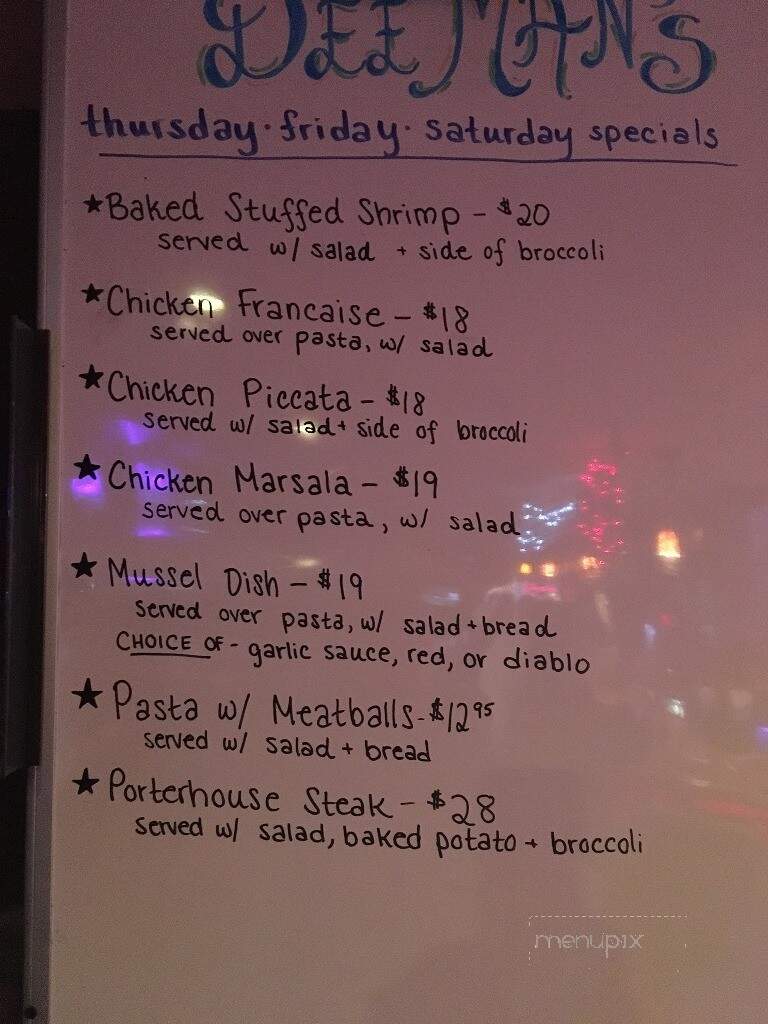 DEEMAN'S
thursday · friday · saturday specials
★Baked Stuffed Shrimp - $20
served w/ salad + side of broccoli
★Chicken Francaise - $18
served over pasta, w/ salad
★Chicken Piccata - $18
served w/ salad + side of broccoli
★Chicken Marsala - $19
served over pasta, w/ salad
★Mussel Dish - $19
served over pasta, w/ salad + bread
CHOICE OF - garlic sauce, red, or diablo
★Pasta w/ Meatballs - $12.95
served w/ salad + bread
★Porterhouse Steak - $28
served w/ salad, baked potato + broccoli
menupix